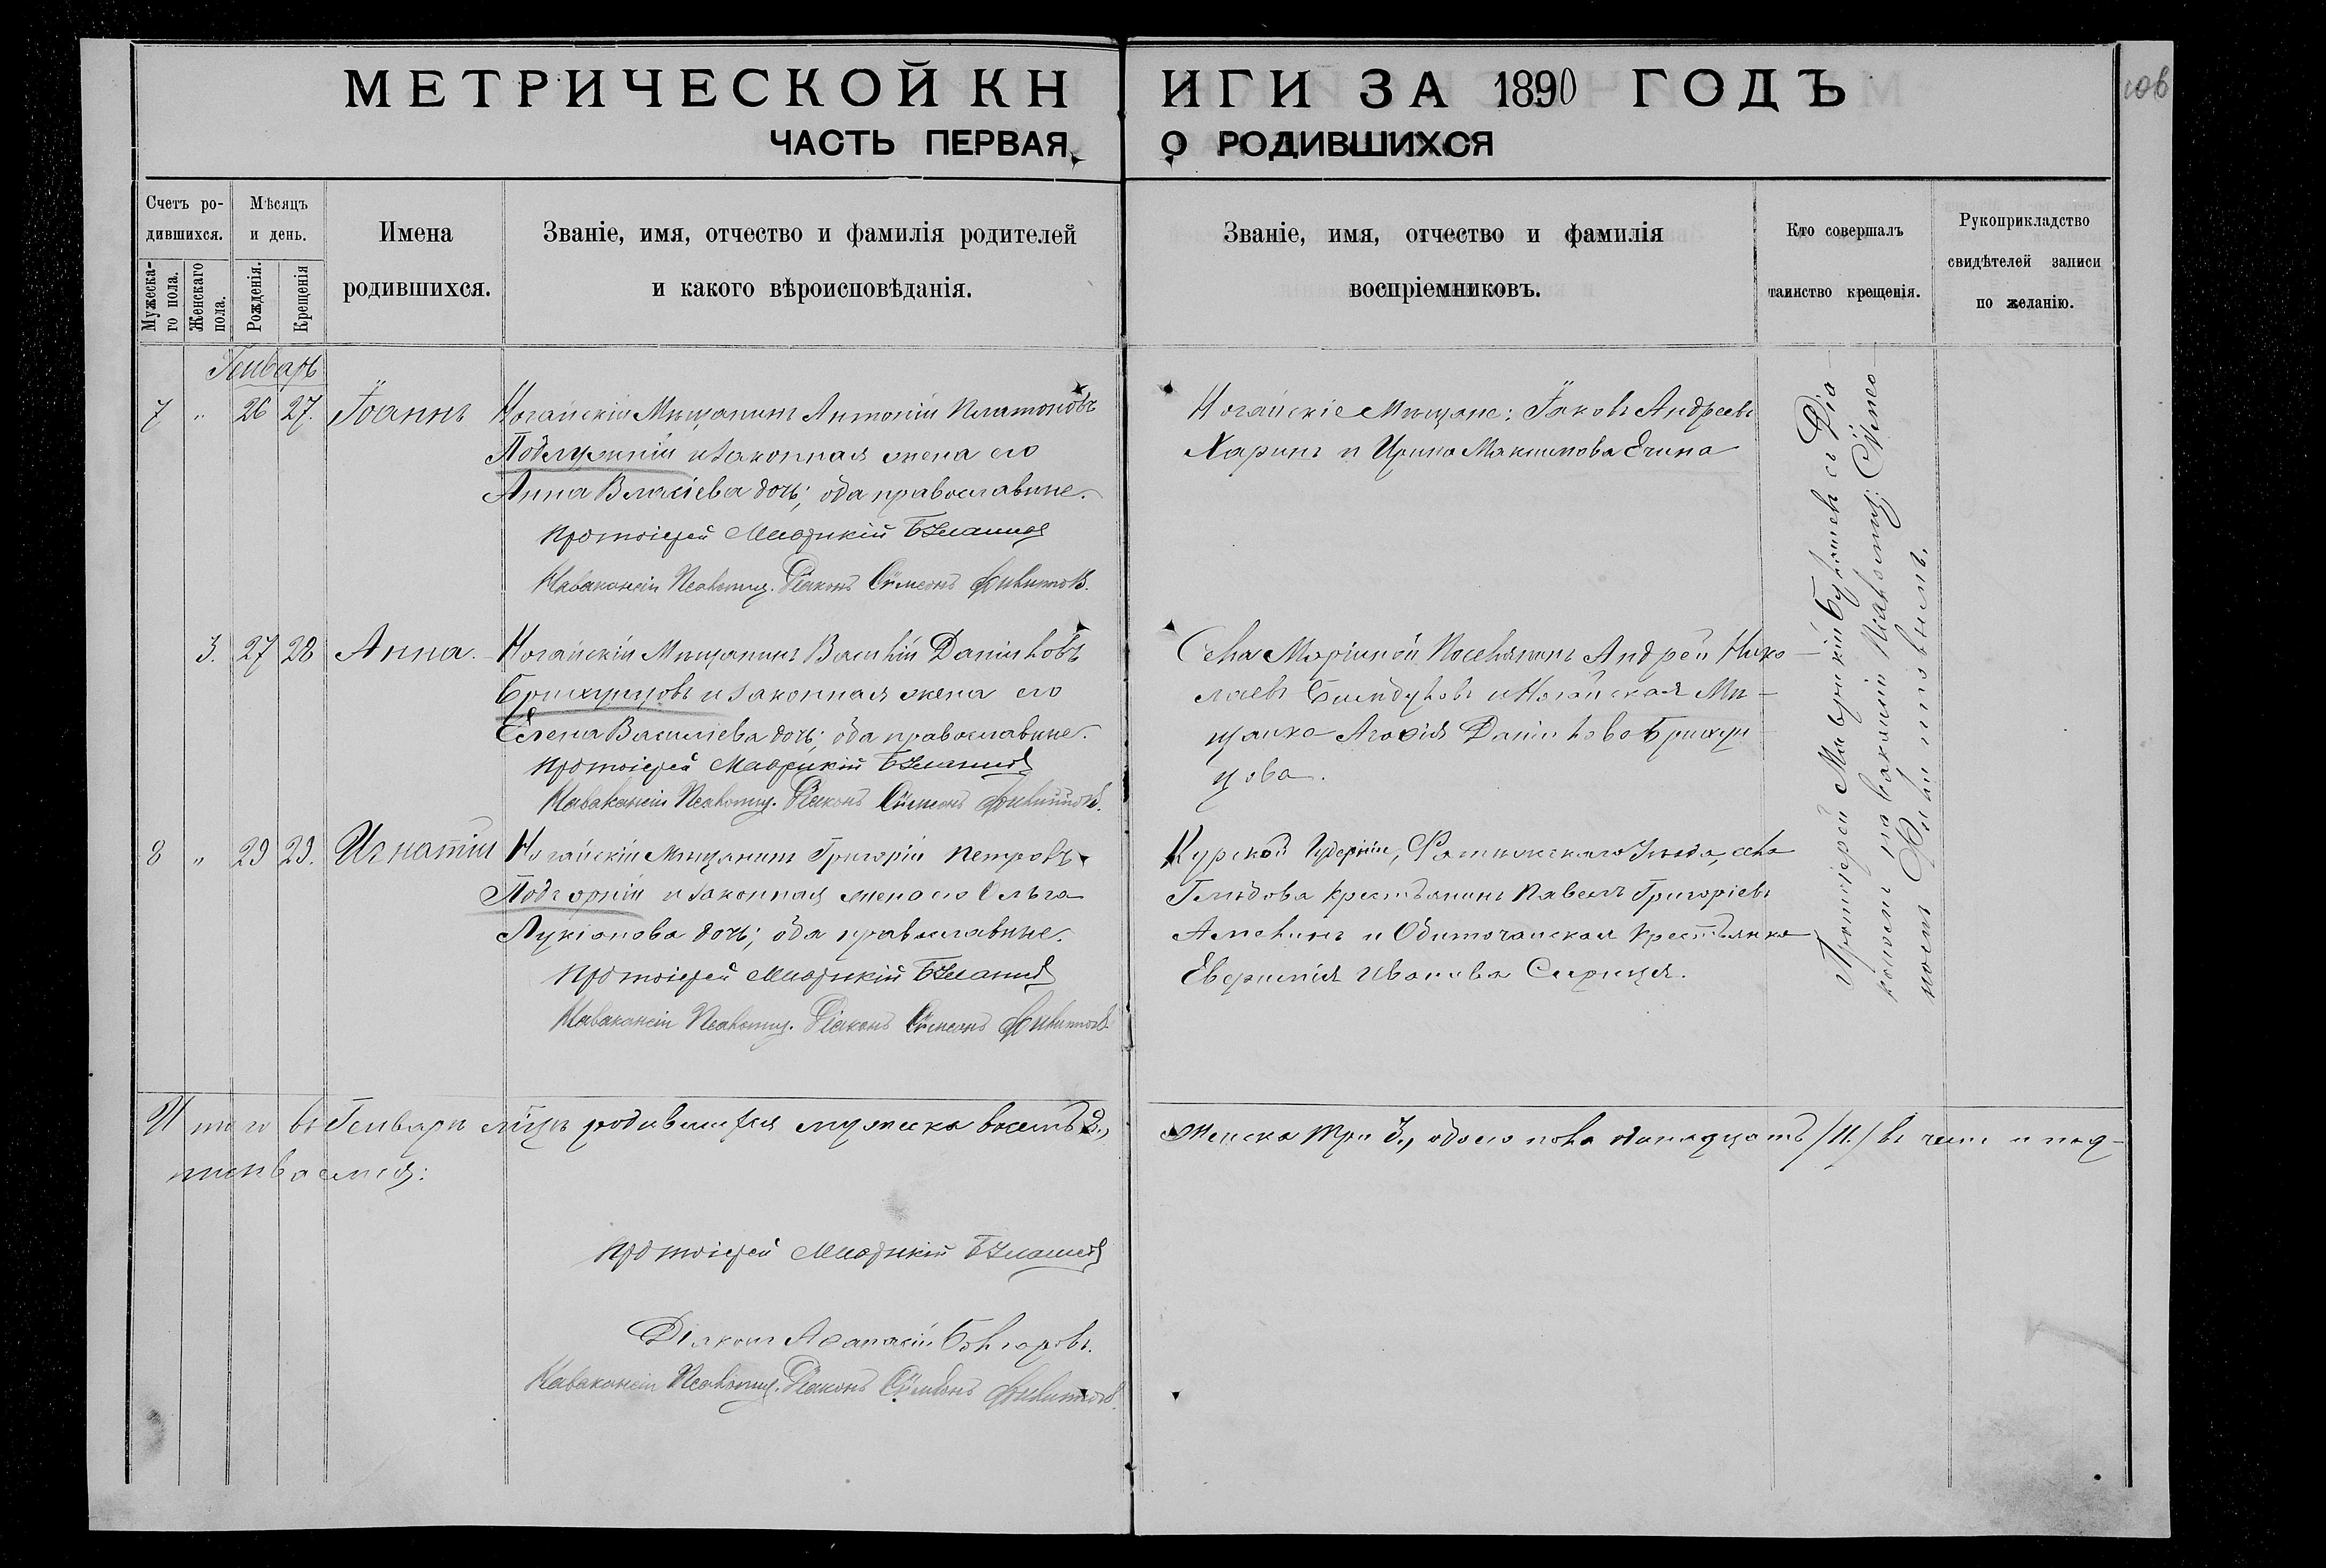 МЕТРИЧЕСКОЙ КНИГИ ЗА 1890 ГОДЪ
106
ЧАСТЬ ПЕРВАЯ, О РОДИВШИХСЯ
Счетъ ро-
дившихся.
Мужеска-
го пола.
Женскаго
пола.
Мѣсяцъ
и день.
Рожденія.
Крещенія
Имена
родившихся.
Званіе, имя, отчество и фамилія родителей
и какого вѣроисповѣданія.
Званіе, имя, отчество и фамилія
воспріемниковъ.
Кто совершалъ
таинство крещенія.
Рукоприкладство
свидѣтелей записи
по желанію.
Генварь
7 " 26 27. Іоаннъ Ногайскій Мѣщанинъ Антоній Платоновъ
Подлужній и законная жена его
Анна Власіева дочь; оба православные.
Протоіерей Маврикій
На вакансіи Псаломщ. Діаконъ Сѵмеонъ Филиповъ.
Ногайскіе Мѣщане: Іаковъ Андреевъ
Харинъ и Ирина Максимова Ечина
3. 27 28 Анна. Ногайскій Мѣщанинъ Василій Даніиловъ
и законная жена его
Елена Василіева дочь; оба православные.
Протоіерей Маврикій
На вакансіи Псаломщ. Діаконъ Сѵмеонъ Филиповъ.
Села Маріиной Поселянинъ Андрей Нико-
лаевъ и Ногайская Мѣ-
щанка Агафія Даніилова
цова.
8 " 29 29. Игнатій Ногайскій Мѣщанинъ Григорій Петровъ
Подгорній и законная жена его Ольга
Лукіанова дочь; оба православные.
Протоіерей Маврикій
На вакансіи Псаломщ. Діаконъ Сѵмеонъ Филиповъ
Курской Губерніи, Уѣзда, села
Крестьянинъ Павелъ Григоріевъ
и Обиточанская Крестьянка
Евфимія Иванова
Протоіерей Маврикій съ Діа-
кономъ на вакансіи Псаломщ: Сѵмео-
номъ Филиповымъ.
Итого въ Генварѣ м-цѣ родившихся мужеска восемь 8.,
женска три 3., обоего пола одинадцать /11./ въ чемъ и под-
писываемся:
Протоіерей Маврикій
Діаконъ Аѳанасій Болгаровъ.
На вакансіи Псаломщ. Діаконъ Сѵмеонъ Филиповъ.